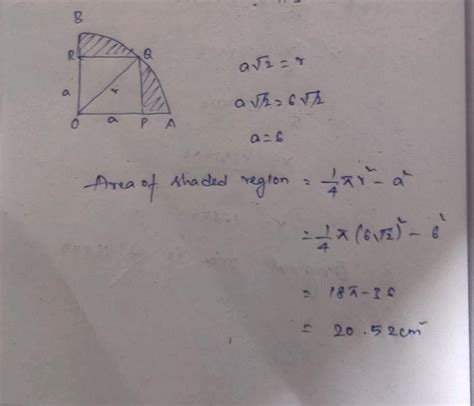 B
R
Q
a
r
O
a
P
A
a√2 = r
a√2 = 6√2
a = 6
Area of shaded region = 1/4 πr² - a²
= 1/4 π (6√2)² - 6²
= 18π - 36
= 20.52cm²